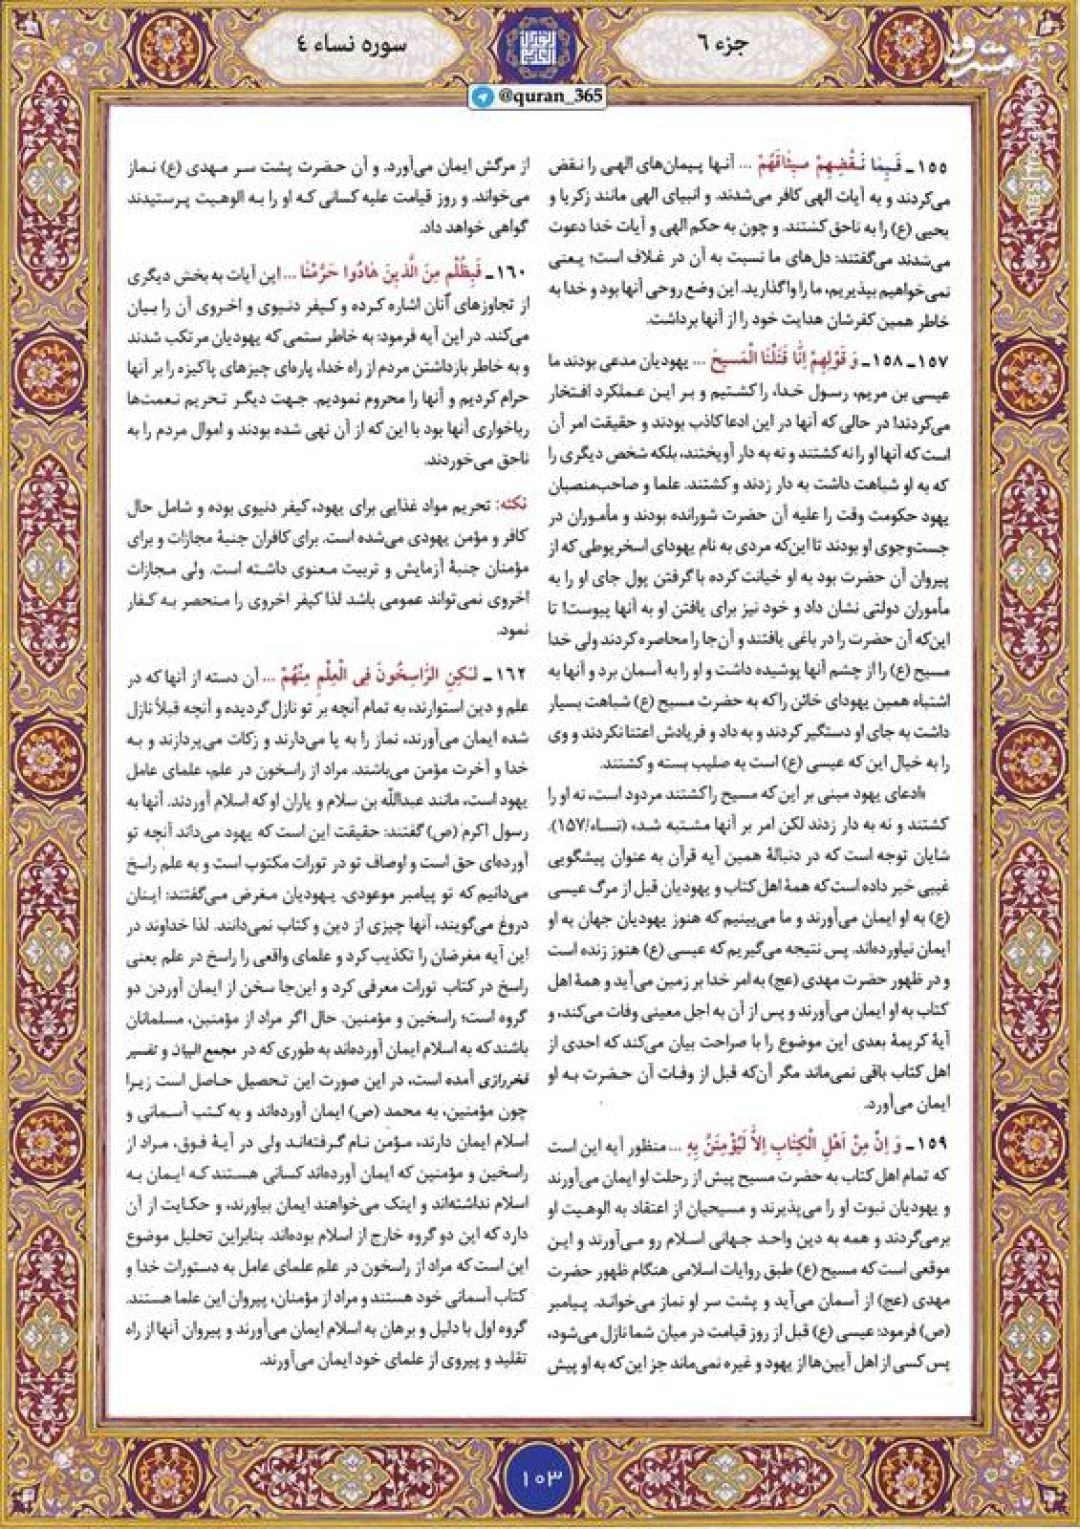 جزء ۶
سوره نساء ۴
@quran_365
مشرق
۱۵۵ـ فَبِمَا نَقْضِهِمْ مِیثَاقَهُمْ ... آنها پیمان‌های الهی را نقض
می‌کردند و به آیات الهی کافر می‌شدند. و انبیای الهی مانند زکریا و
یحیی (ع) را به ناحق کشتند. و چون به حکم الهی و آیات خدا دعوت
می‌شدند می‌گفتند: دل‌های ما نسبت به آن در غلاف است؛ یعنی
نمی‌خواهیم بپذیریم، ما را واگذارید. این وضع روحی آنها بود و خدا به
خاطر همین کفرشان هدایت خود را از آنها برداشت.
۱۵۷ـ ۱۵۸ـ وَ قَوْلِهِمْ اِنَّا قَتَلْنَا الْمَسیحَ ... یهودیان مدعی بودند ما
عیسی بن مریم، رسول خدا، را کشتیم و بر این عملکرد افتخار
می‌کردند! در حالی که آنها در این ادعا کاذب بودند و حقیقت امر آن
است که آنها او را نه کشتند و نه به دار آویختند، بلکه شخص دیگری را
که به او شباهت داشت به دار زدند و کشتند. علما و صاحب‌منصبان
یهود حکومت وقت را علیه آن حضرت شورانده بودند و مأموران در
جست‌وجوی او بودند تا این‌که مردی به نام یهودای اسخریوطی که از
پیروان آن حضرت بود به او خیانت کرده با گرفتن پول جای او را به
مأموران دولتی نشان داد و خود نیز برای یافتن او به آنها پیوست! تا
این‌که آن حضرت را در باغی یافتند و آن‌جا را محاصره کردند ولی خدا
مسیح (ع) را از چشم آنها پوشیده داشت و او را به آسمان برد و آنها به
اشتباه همین یهودای خائن را که به حضرت مسیح (ع) شباهت بسیار
داشت به جای او دستگیر کردند و به داد و فریادش اعتنا نکردند و وی
را به خیال این که عیسی (ع) است به صلیب بسته و کشتند.
«ادعای یهود مبنی بر این که مسیح را کشتند مردود است، نه او را
کشتند و نه به دار زدند لکن امر بر آنها مشتبه شد» (نساء/۱۵۷).
شایان توجه است که در دنبالهٔ همین آیه قرآن به عنوان پیشگویی
غیبی خبر داده است که همهٔ اهل کتاب و یهودیان قبل از مرگ عیسی
(ع) به او ایمان می‌آورند و ما می‌بینیم که هنوز یهودیان جهان به او
ایمان نیاورده‌اند. پس نتیجه می‌گیریم که عیسی (ع) هنوز زنده است
و در ظهور حضرت مهدی (عج) به امر خدا بر زمین می‌آید و همهٔ اهل
کتاب به او ایمان می‌آورند و پس از آن به اجل معینی وفات می‌کند، و
آیهٔ کریمهٔ بعدی این موضوع را با صراحت بیان می‌کند که احدی از
اهل کتاب باقی نمی‌ماند مگر آن‌که قبل از وفات آن حضرت به او
ایمان می‌آورد.
۱۵۹ـ وَ اِنْ مِنْ اَهْلِ الْکِتَابِ اِلَّا لَیُؤْمِنَنَّ بِهِ ... منظور آیه این است
که تمام اهل کتاب به حضرت مسیح پیش از رحلت او ایمان می‌آورند
و یهودیان نبوت او را می‌پذیرند و مسیحیان از اعتقاد به الوهیت او
برمی‌گردند و همه به دین واحد جهانی اسلام رو می‌آورند و این
موقعی است که مسیح (ع) طبق روایات اسلامی هنگام ظهور حضرت
مهدی (عج) از آسمان می‌آید و پشت سر او نماز می‌خواند. پیامبر
(ص) فرمود: عیسی (ع) قبل از روز قیامت در میان شما نازل می‌شود،
پس کسی از اهل آیین‌ها از یهود و غیره نمی‌ماند جز این‌که به او پیش
از مرگش ایمان می‌آورد. و آن حضرت پشت سر مهدی (ع) نماز
می‌خواند، و روز قیامت علیه کسانی که او را به الوهیت پرستیدند
گواهی خواهد داد.
۱۶۰ـ فَبِظُلْمٍ مِنَ الَّذِینَ هَادُوا حَرَّمْنَا ... این آیات به بخش دیگری
از تجاوزهای آنان اشاره کرده و کیفر دنیوی و اخروی آن را بیان
می‌کند. در این آیه فرمود: به خاطر ستمی که یهودیان مرتکب شدند
و به خاطر بازداشتن مردم از راه خدا، پاره‌ای چیزهای پاکیزه را بر آنها
حرام کردیم و آنها را محروم نمودیم. جهت دیگر تحریم نعمت‌ها
رباخواری آنها بود با این که از آن نهی شده بودند و اموال مردم را به
ناحق می‌خوردند.
نکته: تحریم مواد غذایی برای یهود، کیفر دنیوی بوده و شامل حال
کافر و مؤمن یهودی می‌شده است. برای کافران جنبهٔ مجازات و برای
مؤمنان جنبهٔ آزمایش و تربیت معنوی داشته است. ولی مجازات
اخروی نمی‌تواند عمومی باشد لذا کیفر اخروی را منحصر به کفار
نمود.
۱۶۲ـ لٰکِنِ الرَّاسِخُونَ فِی الْعِلْمِ مِنْهُمْ ... آن دسته از آنها که در
علم و دین استوارند، به تمام آنچه بر تو نازل گردیده و آنچه قبلاً نازل
شده ایمان می‌آورند، نماز را به پا می‌دارند و زکات می‌پردازند و به
خدا و آخرت مؤمن می‌باشند. مراد از راسخون در علم، علمای عامل
یهود است، مانند عبدالله بن سلام و یاران او که اسلام آوردند. آنها به
رسول اکرم (ص) گفتند: حقیقت این است که یهود می‌داند آنچه تو
آورده‌ای حق است و اوصاف تو در تورات مکتوب است و به علم راسخ
می‌دانیم که تو پیامبر موعودی. یهودیان مغرض می‌گفتند: اینان
دروغ می‌گویند، آنها چیزی از دین و کتاب نمی‌دانند. لذا خداوند در
این آیه مغرضان را تکذیب کرد و علمای واقعی را راسخ در علم یعنی
راسخ در کتاب تورات معرفی کرد و این‌جا سخن از ایمان آوردن دو
گروه است؛ راسخین و مؤمنین. حال اگر مراد از مؤمنین، مسلمانان
باشند که به اسلام ایمان آورده‌اند به طوری که در مجمع البیان و تفسیر
فخررازی آمده است، در این صورت این تحصیل حاصل است زیرا
چون مؤمنین، به محمد (ص) ایمان آورده‌اند و به کتب آسمانی و
اسلام ایمان دارند، مؤمن نام گرفته‌اند ولی در آیهٔ فوق، مراد از
راسخین و مؤمنین که ایمان آورده‌اند کسانی هستند که ایمان به
اسلام نداشته‌اند و اینک می‌خواهند ایمان بیاورند، و حکایت از آن
دارد که این دو گروه خارج از اسلام بوده‌اند. بنابراین تحلیل موضوع
این است که مراد از راسخون در علم علمای عامل به دستورات خدا و
کتاب آسمانی خود هستند و مراد از مؤمنان، پیروان این علما هستند.
گروه اول با دلیل و برهان به اسلام ایمان می‌آورند و پیروان آنها از راه
تقلید و پیروی از علمای خود ایمان می‌آورند.
۱۰۳